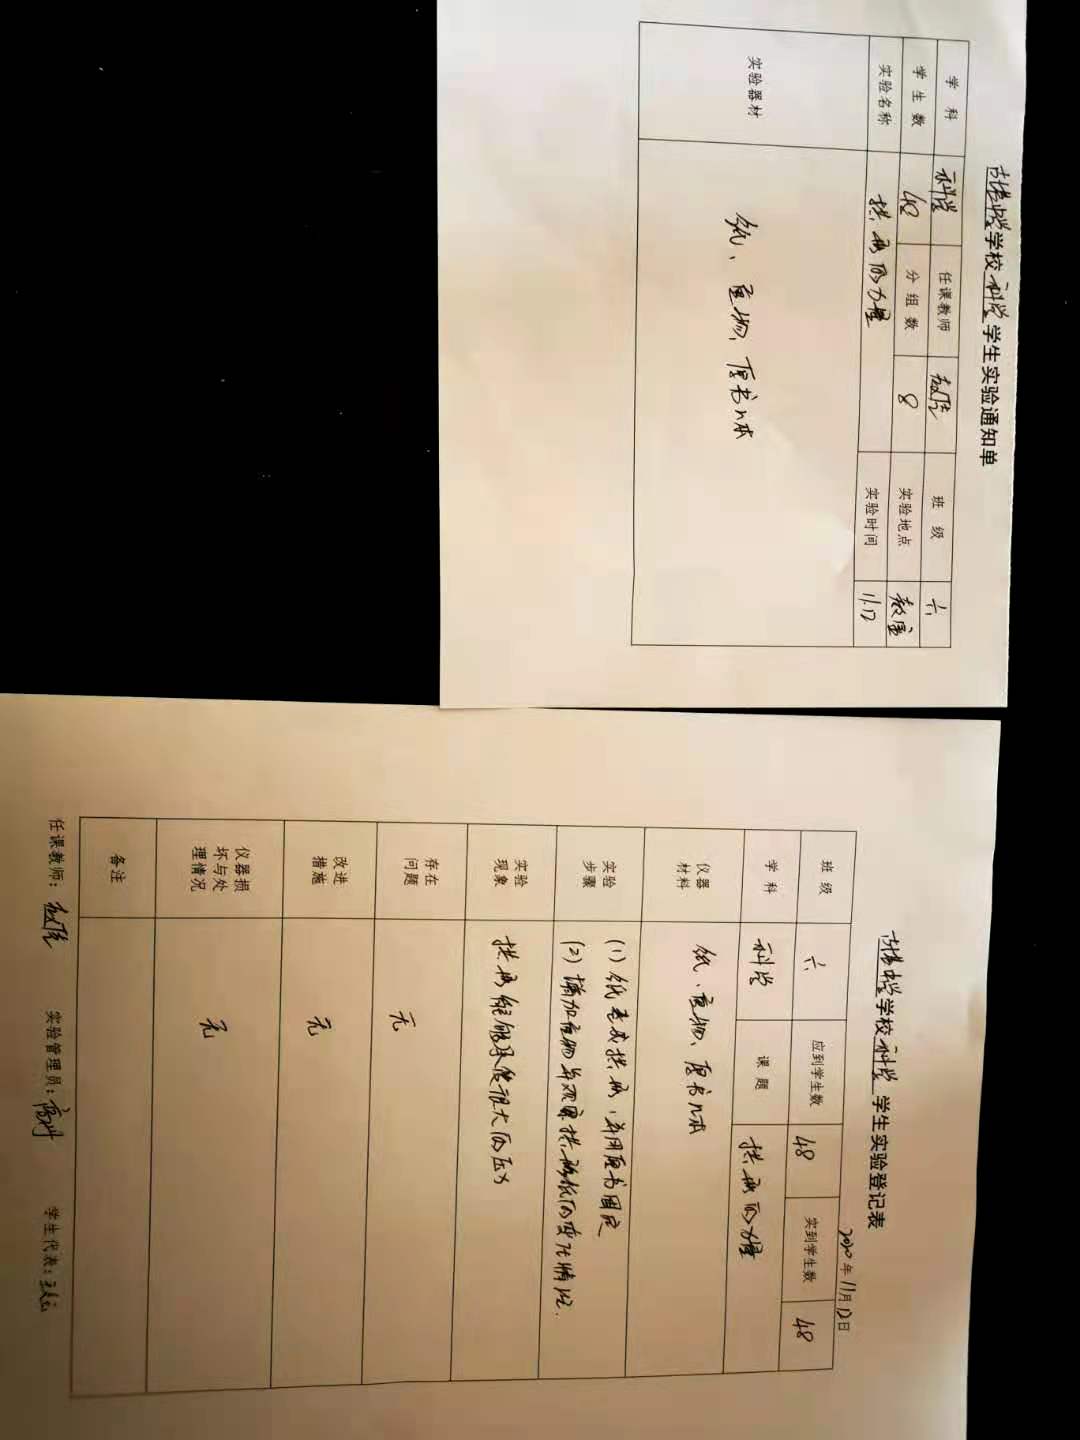 学校科学学生实验通知单
学科 科学 任课教师 班级 六
学生数 48 分组数 8 实验地点 教室
实验名称 拱形的力量 实验时间 11.12
实验器材 纸、重物、厚书几本
学校科学学生实验登记表
2020年11月12日
班级 六 应到学生数 48 实到学生数 48
学科 科学 课题 拱形的力量
仪器材料 纸、重物、厚书几本
实验步骤 (1) 纸卷成拱形,并用厚书固定
(2) 增加重物并观察拱形纸的变化情况.
实验现象 拱形能够承受很大的压力
存在问题 无
改进措施 无
仪器损坏与处理情况 无
备注
任课教师: 实验管理员: 学生代表: